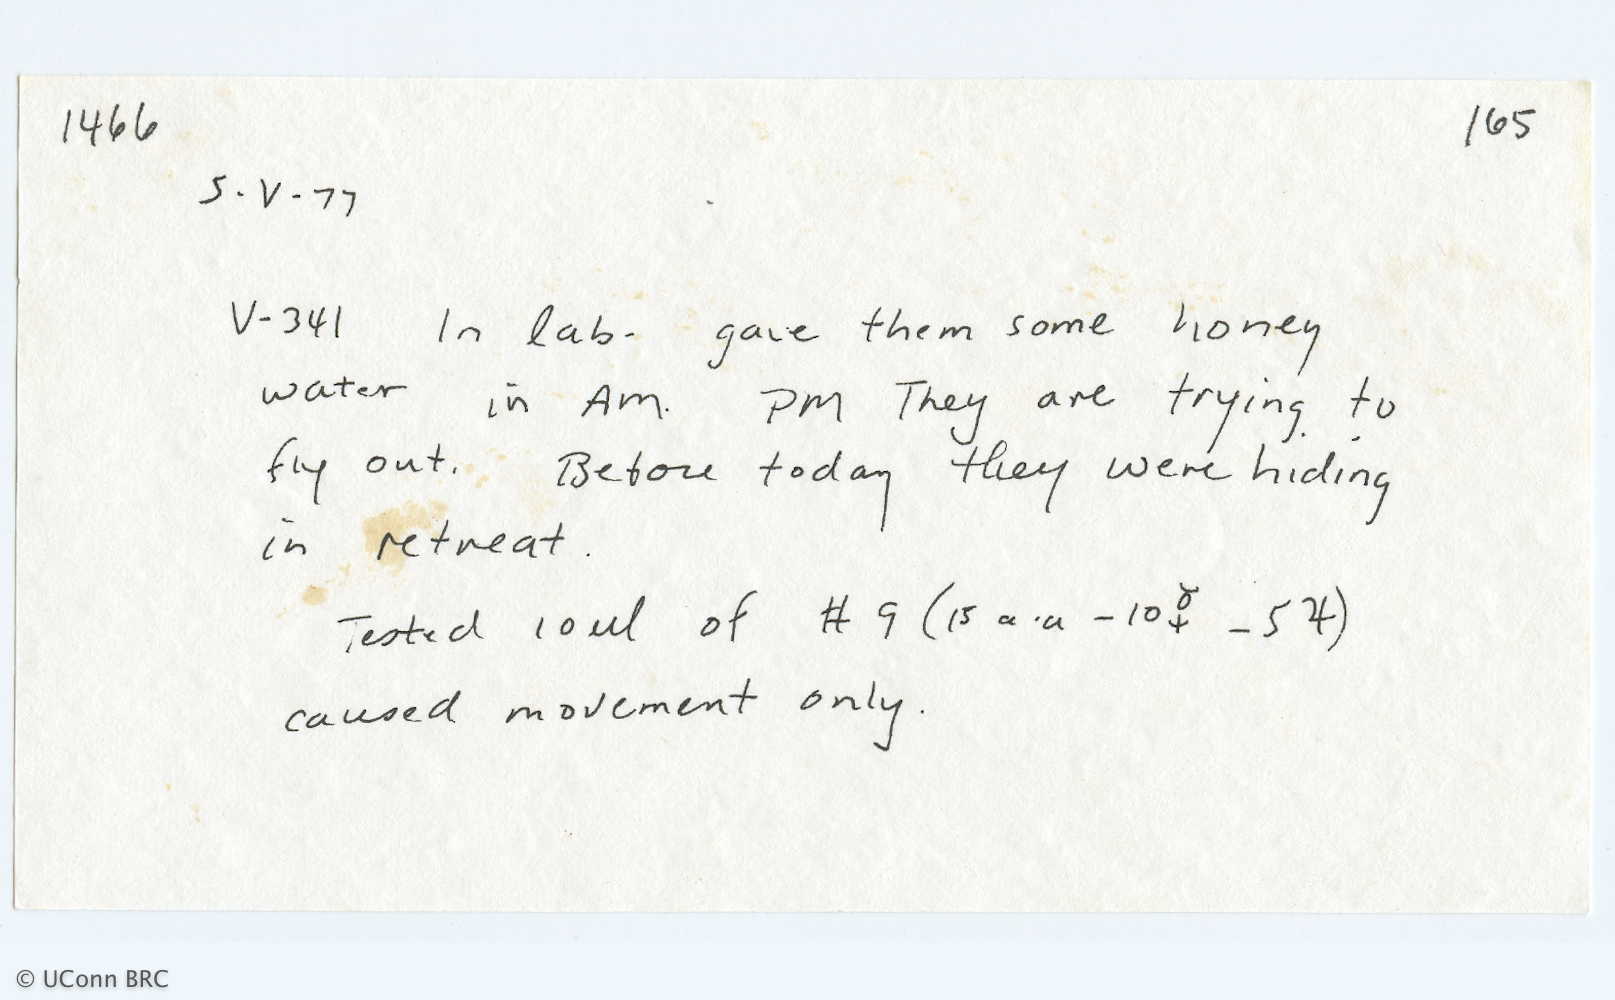 1466 165
5-V-77
V-341 In lab- gave them some honey
water in Am. PM They are trying to
fly out. Before today they were hiding
in retreat.
Tested 10ul of # 9 (15 a.a - 10 - 5 )
caused movement only.
© UConn BRC